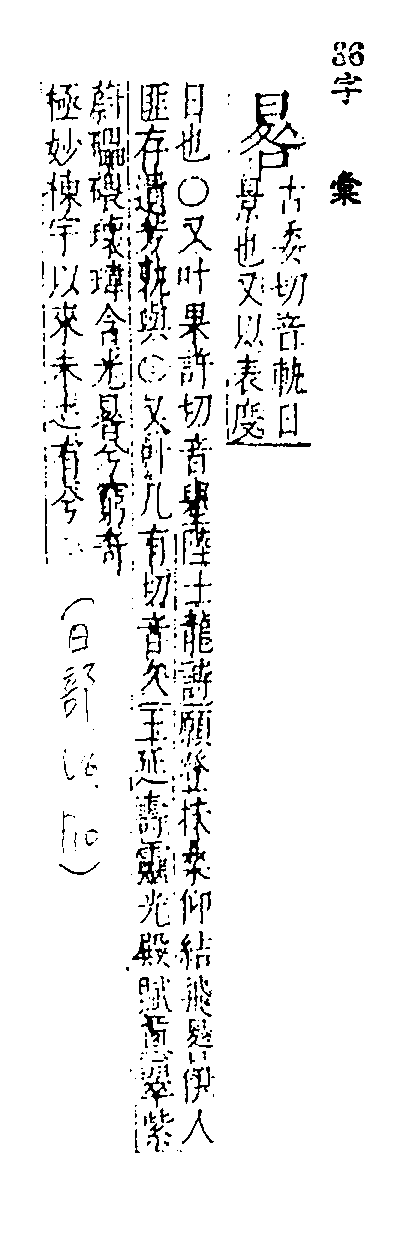 36字 彙
晷古委切音軌日
景也又以表度
日也〇又叶果許切音舉陸士龍詩願登扶桑仰結飛晷伊人
匪存遺芳軌與〇又叶几有切音久王延壽靈光殿賦蔥翠紫
蔚礧碨瓌瑋含光晷兮窮奇
極妙棟宇以來未之有兮
(日部